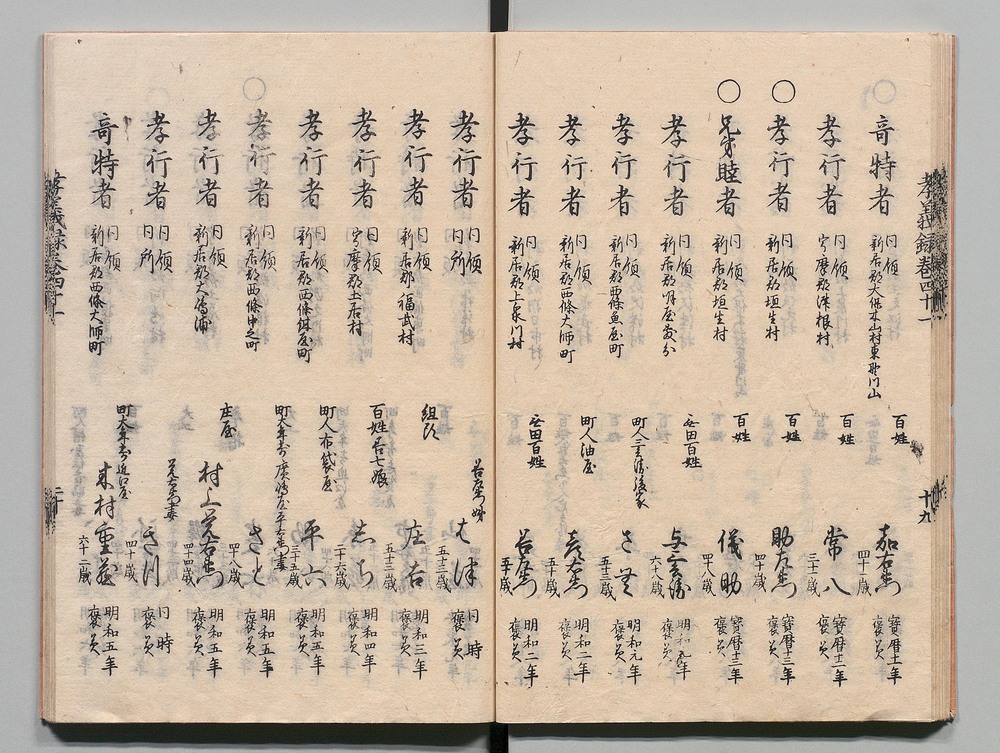 孝義録巻四十一
十九
奇特者
同領
新居郡大保木山村東野川山
百姓
嘉右衛門
四十一歳
寳暦十一年
褒美
孝行者
同領
宇摩郡津根村
百姓
常八
三十一歳
寳暦十二年
褒美
孝行者
同領
新居郡垣生村
百姓
助左衛門
四十歳
寳暦十三年
褒美
兄弟睦者
同領
新居郡垣生村
百姓
儀助
四十八歳
寳暦十三年
褒美
孝行者
同領
無田百姓
六十八歳
明和元年
褒美
孝行者
同領
新居郡西條魚屋町
五十三歳
明和元年
褒美
孝行者
同領
新居郡西條大師町
町人油屋
彦右衛門
四十八歳
明和二年
褒美
孝行者
同領
新居郡上泉川村
無田百姓
五十歳
明和二年
褒美
孝行者
同領
同所
はつ
五十三歳
同時
褒美
孝行者
同領
新居郡福武村
組頭
庄右
五十三歳
明和三年
褒美
孝行者
同領
宇摩郡土居村
百姓
三十六歳
明和四年
褒美
孝行者
同領
新居郡西條紺屋町
町人布袋屋
平六
三十五歳
明和五年
褒美
孝行者
同領
新居郡西條中之町
町大年寄廣嶋屋平右衛門妻
さと
四十八歳
明和五年
褒美
孝行者
同領
新居郡大嶋浦
庄屋
村上
四十四歳
明和五年
褒美
孝行者
同領
同所
四十歳
同時
褒美
奇特者
同領
新居郡西條大師町
町大年寄近江屋
木村重蔵
六十二歳
明和五年
褒美
孝義録巻四十一
二十